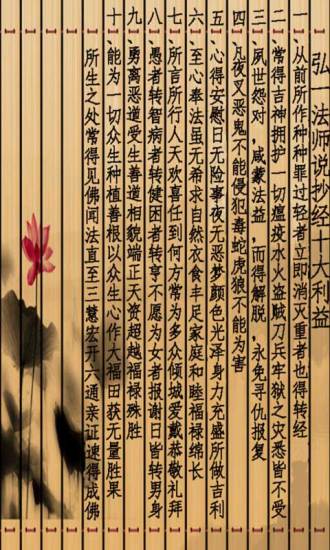 弘一法师说抄经十大利益
一、从前所作种种罪过轻者立即消灭重者也得转经
二、常得吉神拥护一切瘟疫水火盗贼刀兵牢狱之灾悉皆不受
三、夙世怨对，咸蒙法益，而得解脱，永免寻仇报复
四、凡夜叉恶鬼不能侵犯毒蛇虎狼不能为害
五、心得安慰日无险事夜无恶梦颜色光泽身力充盛所做吉利
六、至心奉法虽无希求自然衣食丰足家庭和睦福禄绵长
七、所言所行人天欢喜任到何方常为多众倾城爱戴恭敬礼拜
八、愚者转智病者转健困者转亨不愿为女者报谢日皆转男身
九、勇离恶道受生善道相貌端正天资超越福禄殊胜
十、能为一切众生种植善根以众生心作大福田获无量胜果
所生之处常得见佛闻法直至三慧宏开六通亲证速得成佛